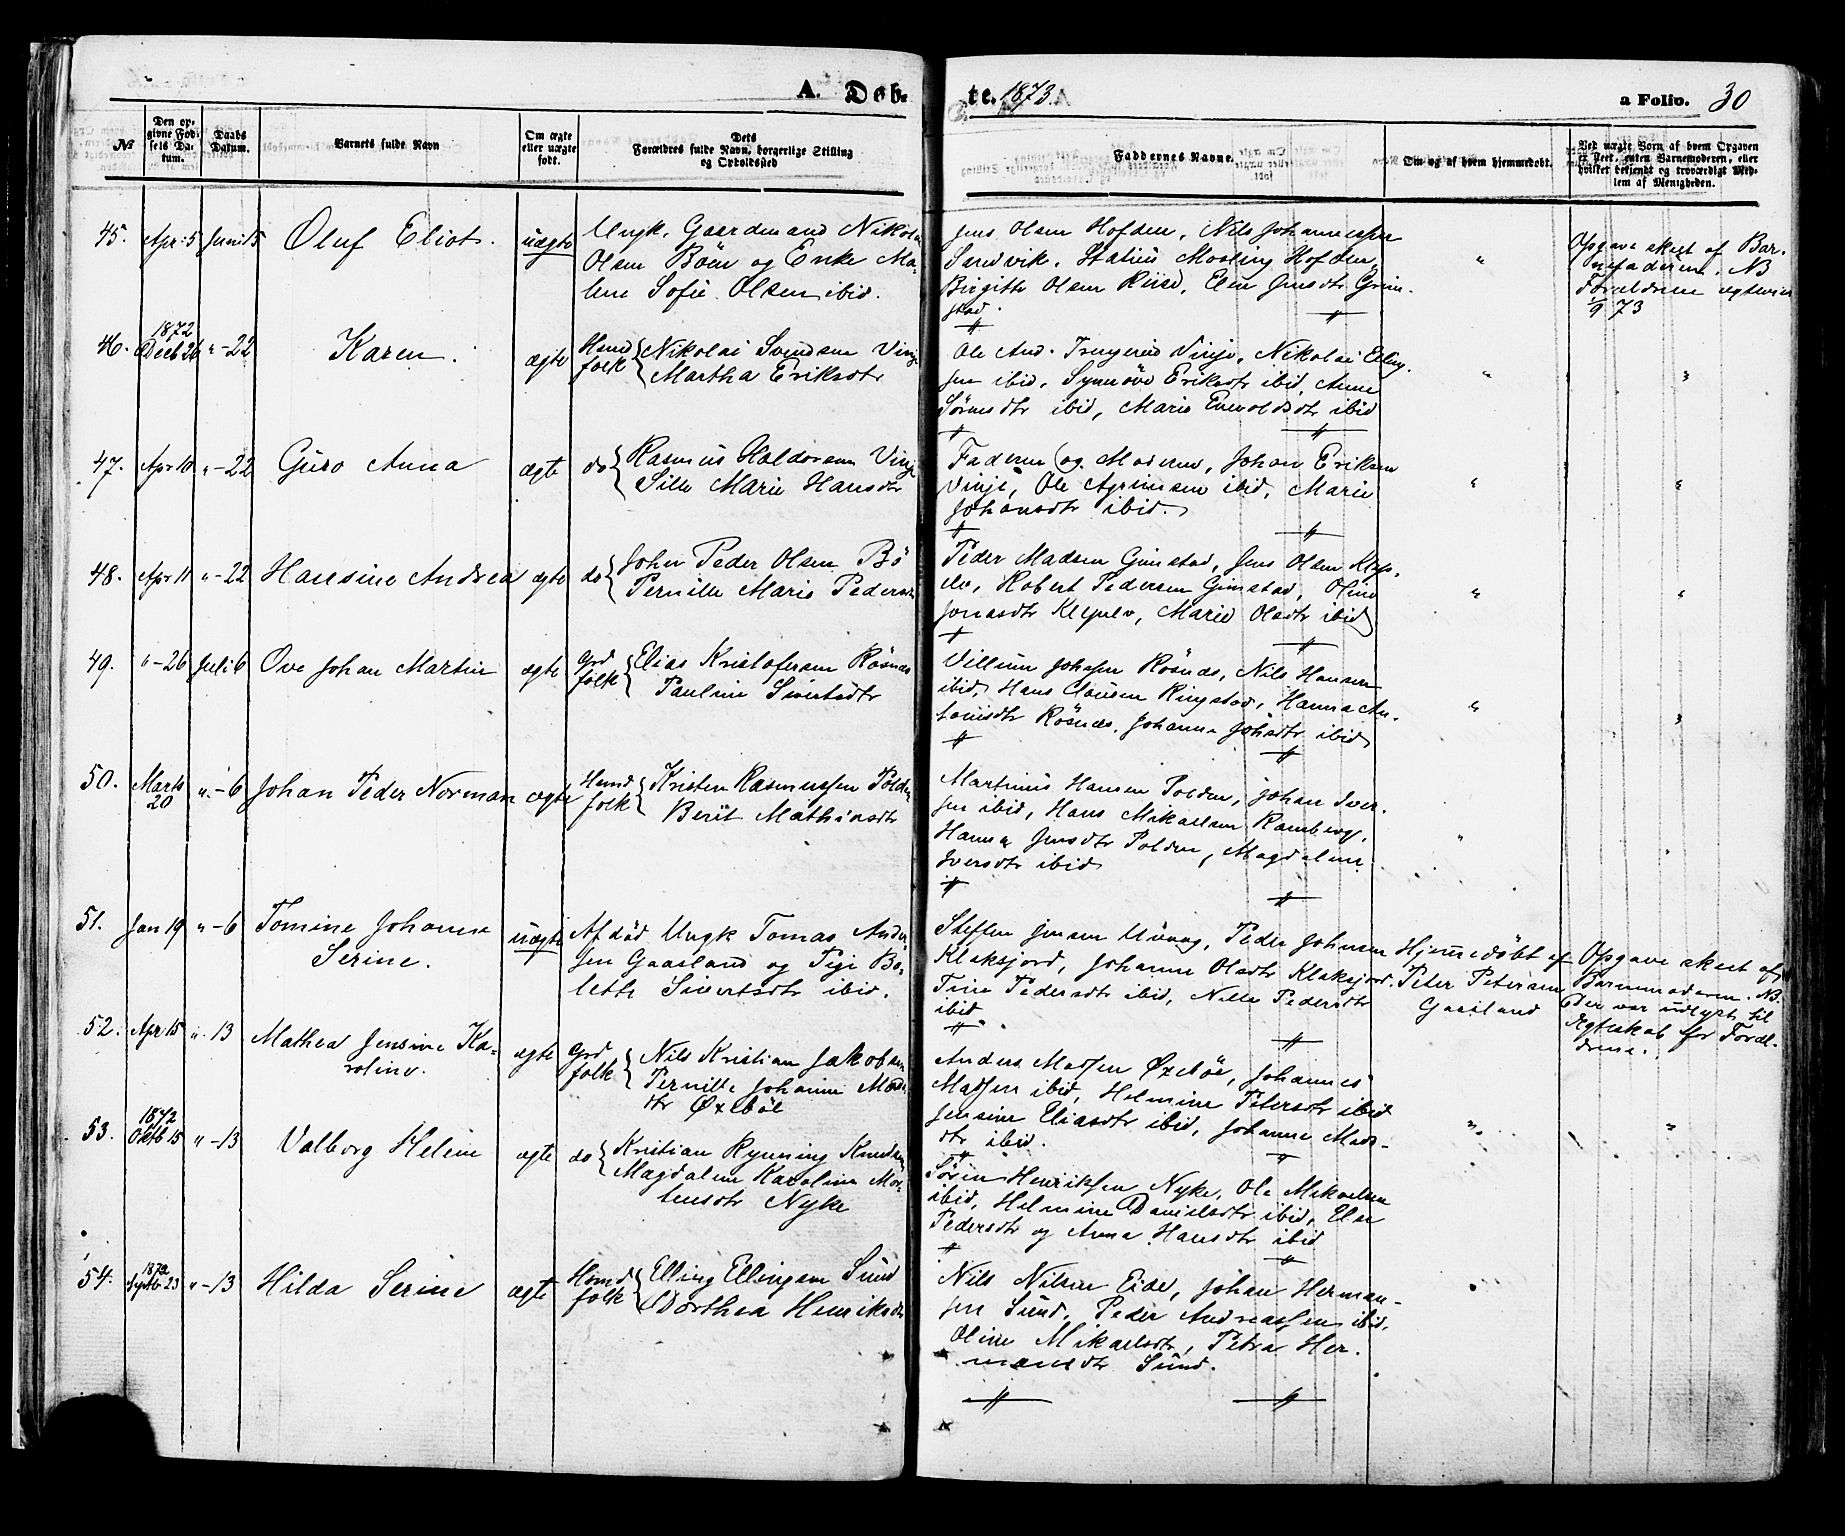 A. Døb-
te. 1873.
a Folio. 30
No
Den op-
givne Fød-
sels Da-
tum.
Daabs
Datum.
Barnets fulde Navn
Om ægte
eller uægte
født.
Dets
Forældres fulde Navn, borgerlige Stilling
og Opholdssted
Faddernes Navne.
Om og af hvem hjemmedøbt.
Ved uægte Børn af hvem Opgaven
er skeet, enten Barnemoderen, eller
hvilket bekjendt og troværdigt Med-
lem af Menigheden.
45. Apr: 5 Juni 15 Oluf Eliot. uægte
Ungk. Gaardmand Nikolai
Olsen Böen og Enke Ma-
lene Sofie Olsen ibid.
Jens Olsen Hofden, Nils Johannessen
Sandvik, Statius Mosling Hofden,
Birgitte Olsen Riise, Elen Jensdtr Grim-
stad.
"
Opgave skeet af Bar-
nefaderen. NB
Forældrene egteviet
1/9 73
46. 1872 Decb 26 " - 22 Karen. ægte
Hmd
folk
Nikolai Svendsen Vinje
Martha Eriksdtr
Ole And. Trugerud Vinje, Nikolai Elling-
sen ibid, Synnöve Eriksdtr ibid, Anne
Sörensdtr ibid, Marie Evervoldsdtr ibid
" "
47. Apr 10 " - 22 Guro Anna ægte do
Rasmus Haldorsen Vinje
Sille Marie Hansdtr
Faderen og Moderen, Johan Eriksen
Vinje, Ole Agrimsen ibid, Marie
Johansdtr ibid.
" "
48. Apr 11 " - 22 Hansine Andrea ægte do
John Peder Olsen Bö
Pernille Marie Pedersdtr
Peder Madsen Grimstad, Jens Olsen Klep-
elv, Robert Pedersen Grimstad, Oline
Jonasdtr Klepelv, Marie Olsdtr ibid
" "
49. " - 26 Juli 6 Ove Johan Martin ægte
Grd
folk
Elias Kristofersen Rösnes
Pauline Sivertsdtr
Villum Johnsen Rösnes, Nils Hansen
ibid, Hans Clausen Ringstad, Hanna An-
tonisdtr Rösnes, Johanna Johsdtr ibid
" "
50. Marts
20 " - 6 Johan Peder Norman ægte
Hmd
folk
Kristen Rasmussen Polden
Berit Mathiasdtr
Martinus Hansen Polden, Johan Iver-
sen ibid, Hans Mikaelsen Ramberg,
Hanna Jensdtr Polden, Magdalena
Iversdtr ibid
" "
51. Jan 19 " - 6 Tomine Johanna
Serine. uægte
Afdöd Ungk Tomas Ander-
sen Gaasland og Pige Bo-
lette Sivertsdtr ibid.
Steffen Jensen Uvaag, Peder Johnsen
Klaksjord, Johanne Olsdtr Klaksjord.
Trine Pedersdtr ibid, Nille Pedersdtr
ibid.
Hjemmedöbt af
Peter Petersen
Gaasland
Opgave skeet af
Barnemoderen. NB.
Der var udlyst til
Ægteskab for Foræl-
drene.
52. Apr 15 " 13 Mathea Jensine Ka-
roline. ægte
Grd
folk
Nils Kristian Jakobsen
Pernille Johanne Mads-
dtr Öxebøl
Anders Madsen Öxebøl, Johannes
Madsen ibid, Helmine Petersdtr ibid
Jensine Eliasdtr ibid, Johanna Mads-
dtr ibid.
" "
53. 1872
Oktb 15 " - 13 Valborg Helene ægte do
Kristian Rynning Knudsen
Magdalena Karoline Mor-
tensdtr Nyke
Sören Henriksen Nyke, Ole Mikaelsen
ibid, Helmine Danielsdtr ibid, Else
Pedersdtr og Anna Hansdtr ibid
54. 1872
Septbr 23 " - 13 Hilda Serine ægte
Hmd
folk
Elling Ellingsen Sund
Dorthea Henriksdtr
Nils Nilsen Eide, Johan Herman-
sen Sund, Peder Andreassen ibid,
Oline Mikaelsdtr, Petra Her-
mansdtr Sund.